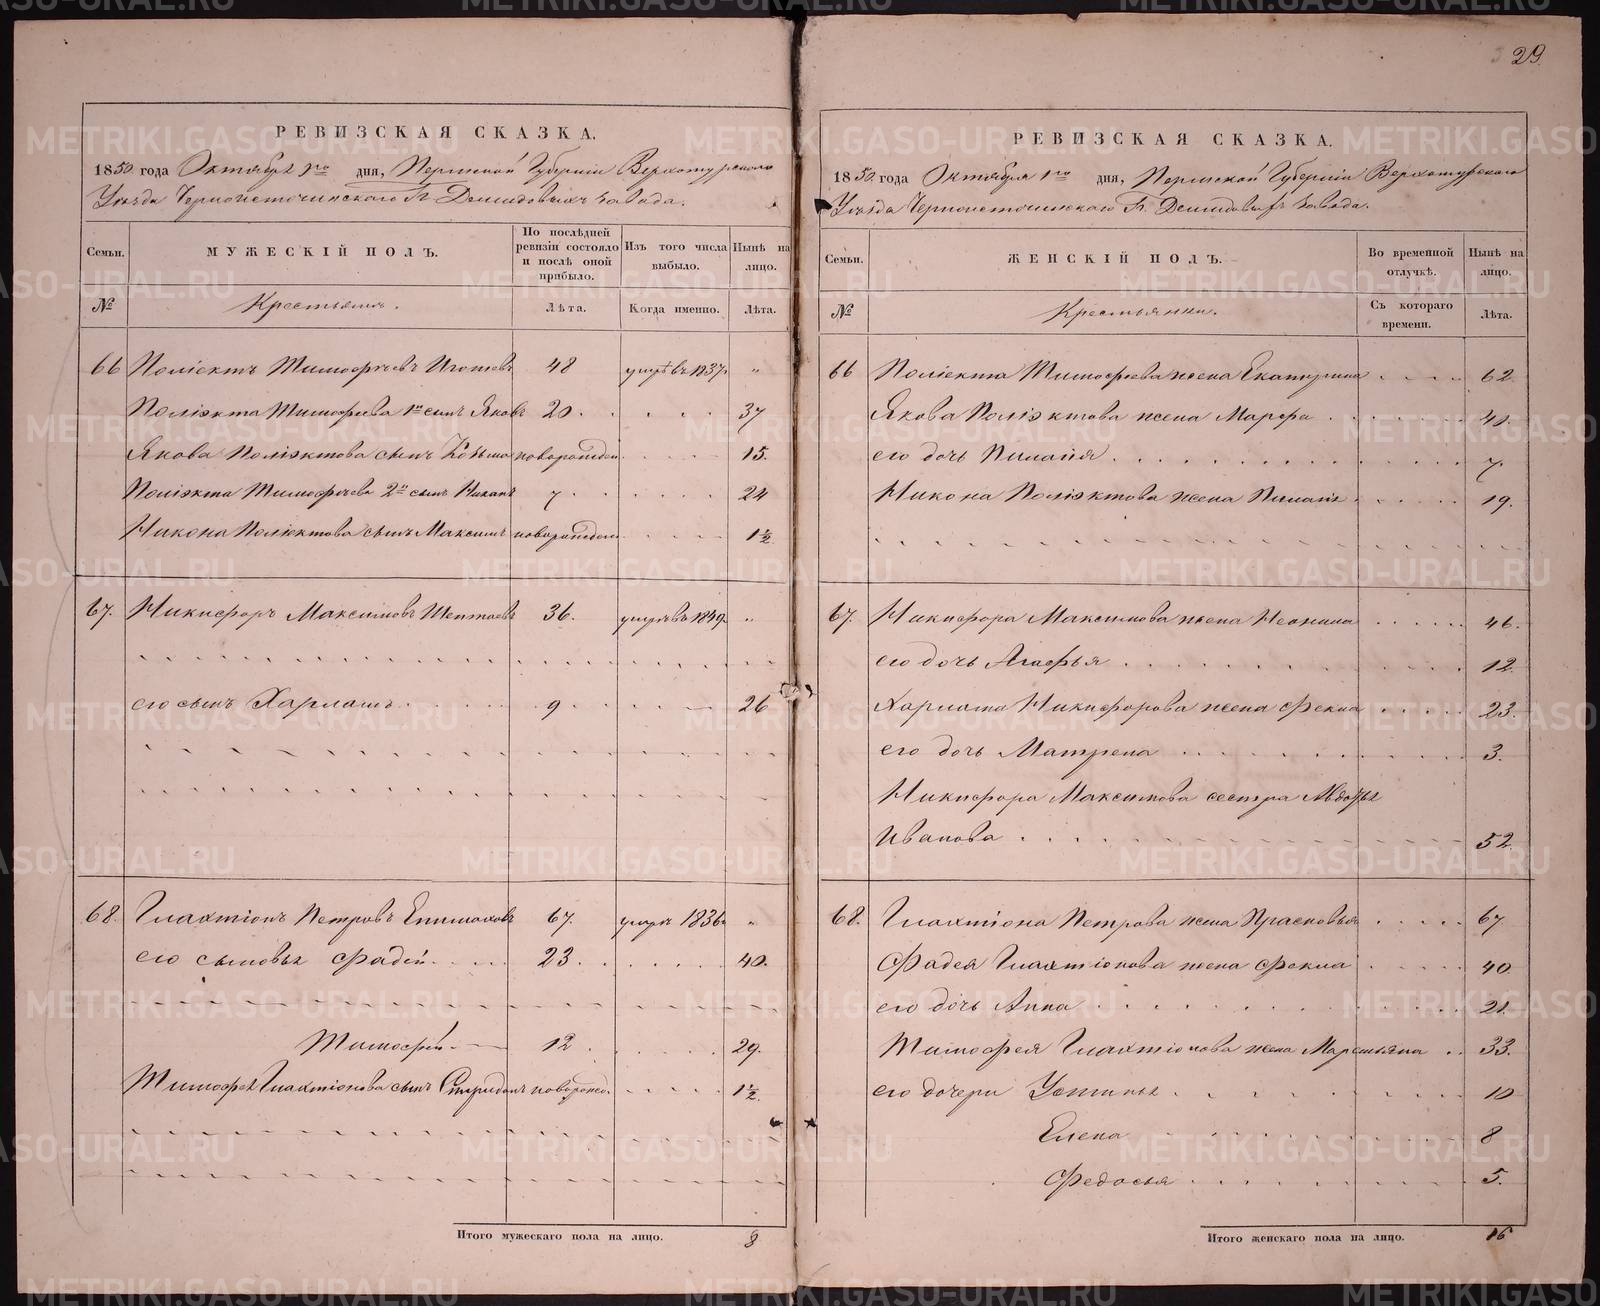 29.
РЕВИЗСКАЯ СКАЗКА.
1850 года Октября 1го дня, Пермской Губерніи Верхотурскаго
Уѣзда Черноисточинскаго Гг Демидовыхъ Завода.
Семьи.
МУЖЕСКІЙ ПОЛЪ.
По послѣдней ревизіи состояло и послѣ оной прибыло.
Изъ того числа выбыло.
Нынѣ на лицо.
№
Крестьяне.
Лѣта.
Когда именно.
Лѣта.
66 Поліектъ Тимофѣевъ 48 умре въ 1837 "
Поліэкта Тимофѣева 1й сынъ Яковъ 20 37
Якова Поліэктова сынъ Козьма новорожден 15.
Поліэкта Тимофѣева 2й сынъ Никонъ 7 24
Никона Поліектова сынъ Максимъ новорожден 1½
67. Никифоръ Максимовъ 36. умре въ 1849 "
его сынъ Харламъ 9 26
68. Галахтіонъ Петровъ Епимаховъ 67. умре 1836 "
его сыновья Фадей 23. 40.
Тимофей 12 29.
Тимофея Галахтіонова сынъ Спиридонъ новорожд. 1½
Итого мужескаго пола на лицо. 8
РЕВИЗСКАЯ СКАЗКА.
1850 года Октября 1го дня, Пермской Губерніи Верхотурскаго
Уѣзда Черноисточинскаго Гг Демидовыхъ Завода.
Семьи.
ЖЕНСКІЙ ПОЛЪ.
Во временной отлучкѣ.
Нынѣ на лицо.
№
Крестьянки.
Съ котораго времени.
Лѣта.
66 Поліекта Тимофѣева жена Екатерина 62
Якова Поліэктова жена Марфа 40.
его дочь Пилагія 7.
Никона Поліэктова жена 19.
67. Никифора Максимова жена Неонила 46.
его дочь Агафья 12.
Харлама Никифорова жена Фекла 23.
его дочь Матрена 3.
Никифора Максимова сестра Авдотья
Иванова 52
68. Галахтіона Петрова жена Прасковья 67
Фадея Галахтіонова жена Фекла 40
его дочь Анна 21.
Тимофея Галахтіонова жена Маремьяна 33.
его дочери Устинья 10
Елена 8
Федосья 5.
Итого женскаго пола на лицо. 16
METRIKI.GASO-URAL.RU